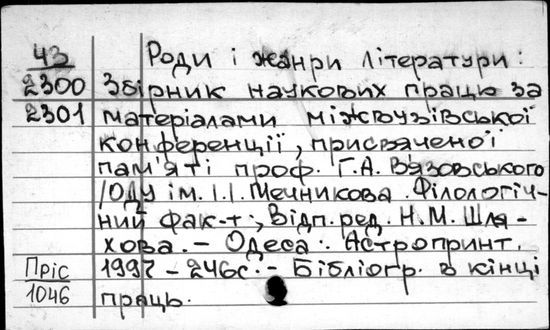 43 Роди і жанри літератури:
2300 Збірник наукових праць за
2301 матеріалами міжвузівської
конференції, присвяченої
пам'яті проф. Г.А. Вязовського
/ОДУ ім. І.І. Мечникова. Філологіч-
ний фак-т; Відп. ред. Н.М. Шля-
хова. – Одеса: Астропринт,
Пріс 1997 – 246с. – Бібліогр. в кінці
1046 праць.